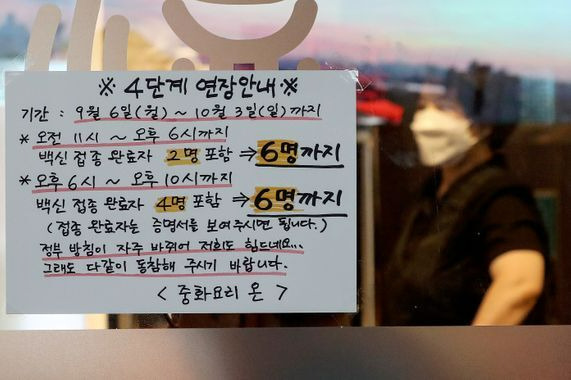 ※ 4단계 연장안내 ※
기간 : 9월 6일(월) ~ 10월 3일(일) 까지
* 오전 11시 ~ 오후 6시까지
백신 접종 완료자 2명 포함 ⇒ 6명까지
* 오후 6시 ~ 오후 10시까지
백신 접종 완료자 4명 포함 ⇒ 6명까지
(접종 완료자는 증명서를 보여주시면 됩니다.)
정부 방침이 자주 바뀌어 저희도 힘드네요...
그래도 다같이 동참해 주시기 바랍니다.
< 중화요리 온 >